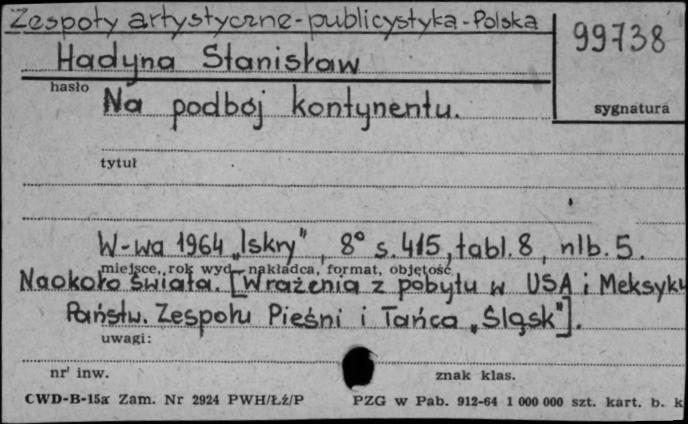 Zespoły artystyczne-publicystyka-Polska
99738
Hadyna Stanisław
hasło
Na podbój kontynentu.
sygnatura
tytuł
W-wa 1964 „Iskry", 8° s. 415, tabl. 8, nlb. 5.
miejsce, rok wyd., nakładca, format, objętość
Naokoło świata. [Wrażenia z pobytu w USA i Meksyku
Państw. Zespołu Pieśni i Tańca „Śląsk"].
uwagi:
nr inw.
znak klas.
CWD-B-15a Zam. Nr 2924 PWH/Łź/P
PZG w Pab. 912-64 1 000 000 szt. kart. b. k